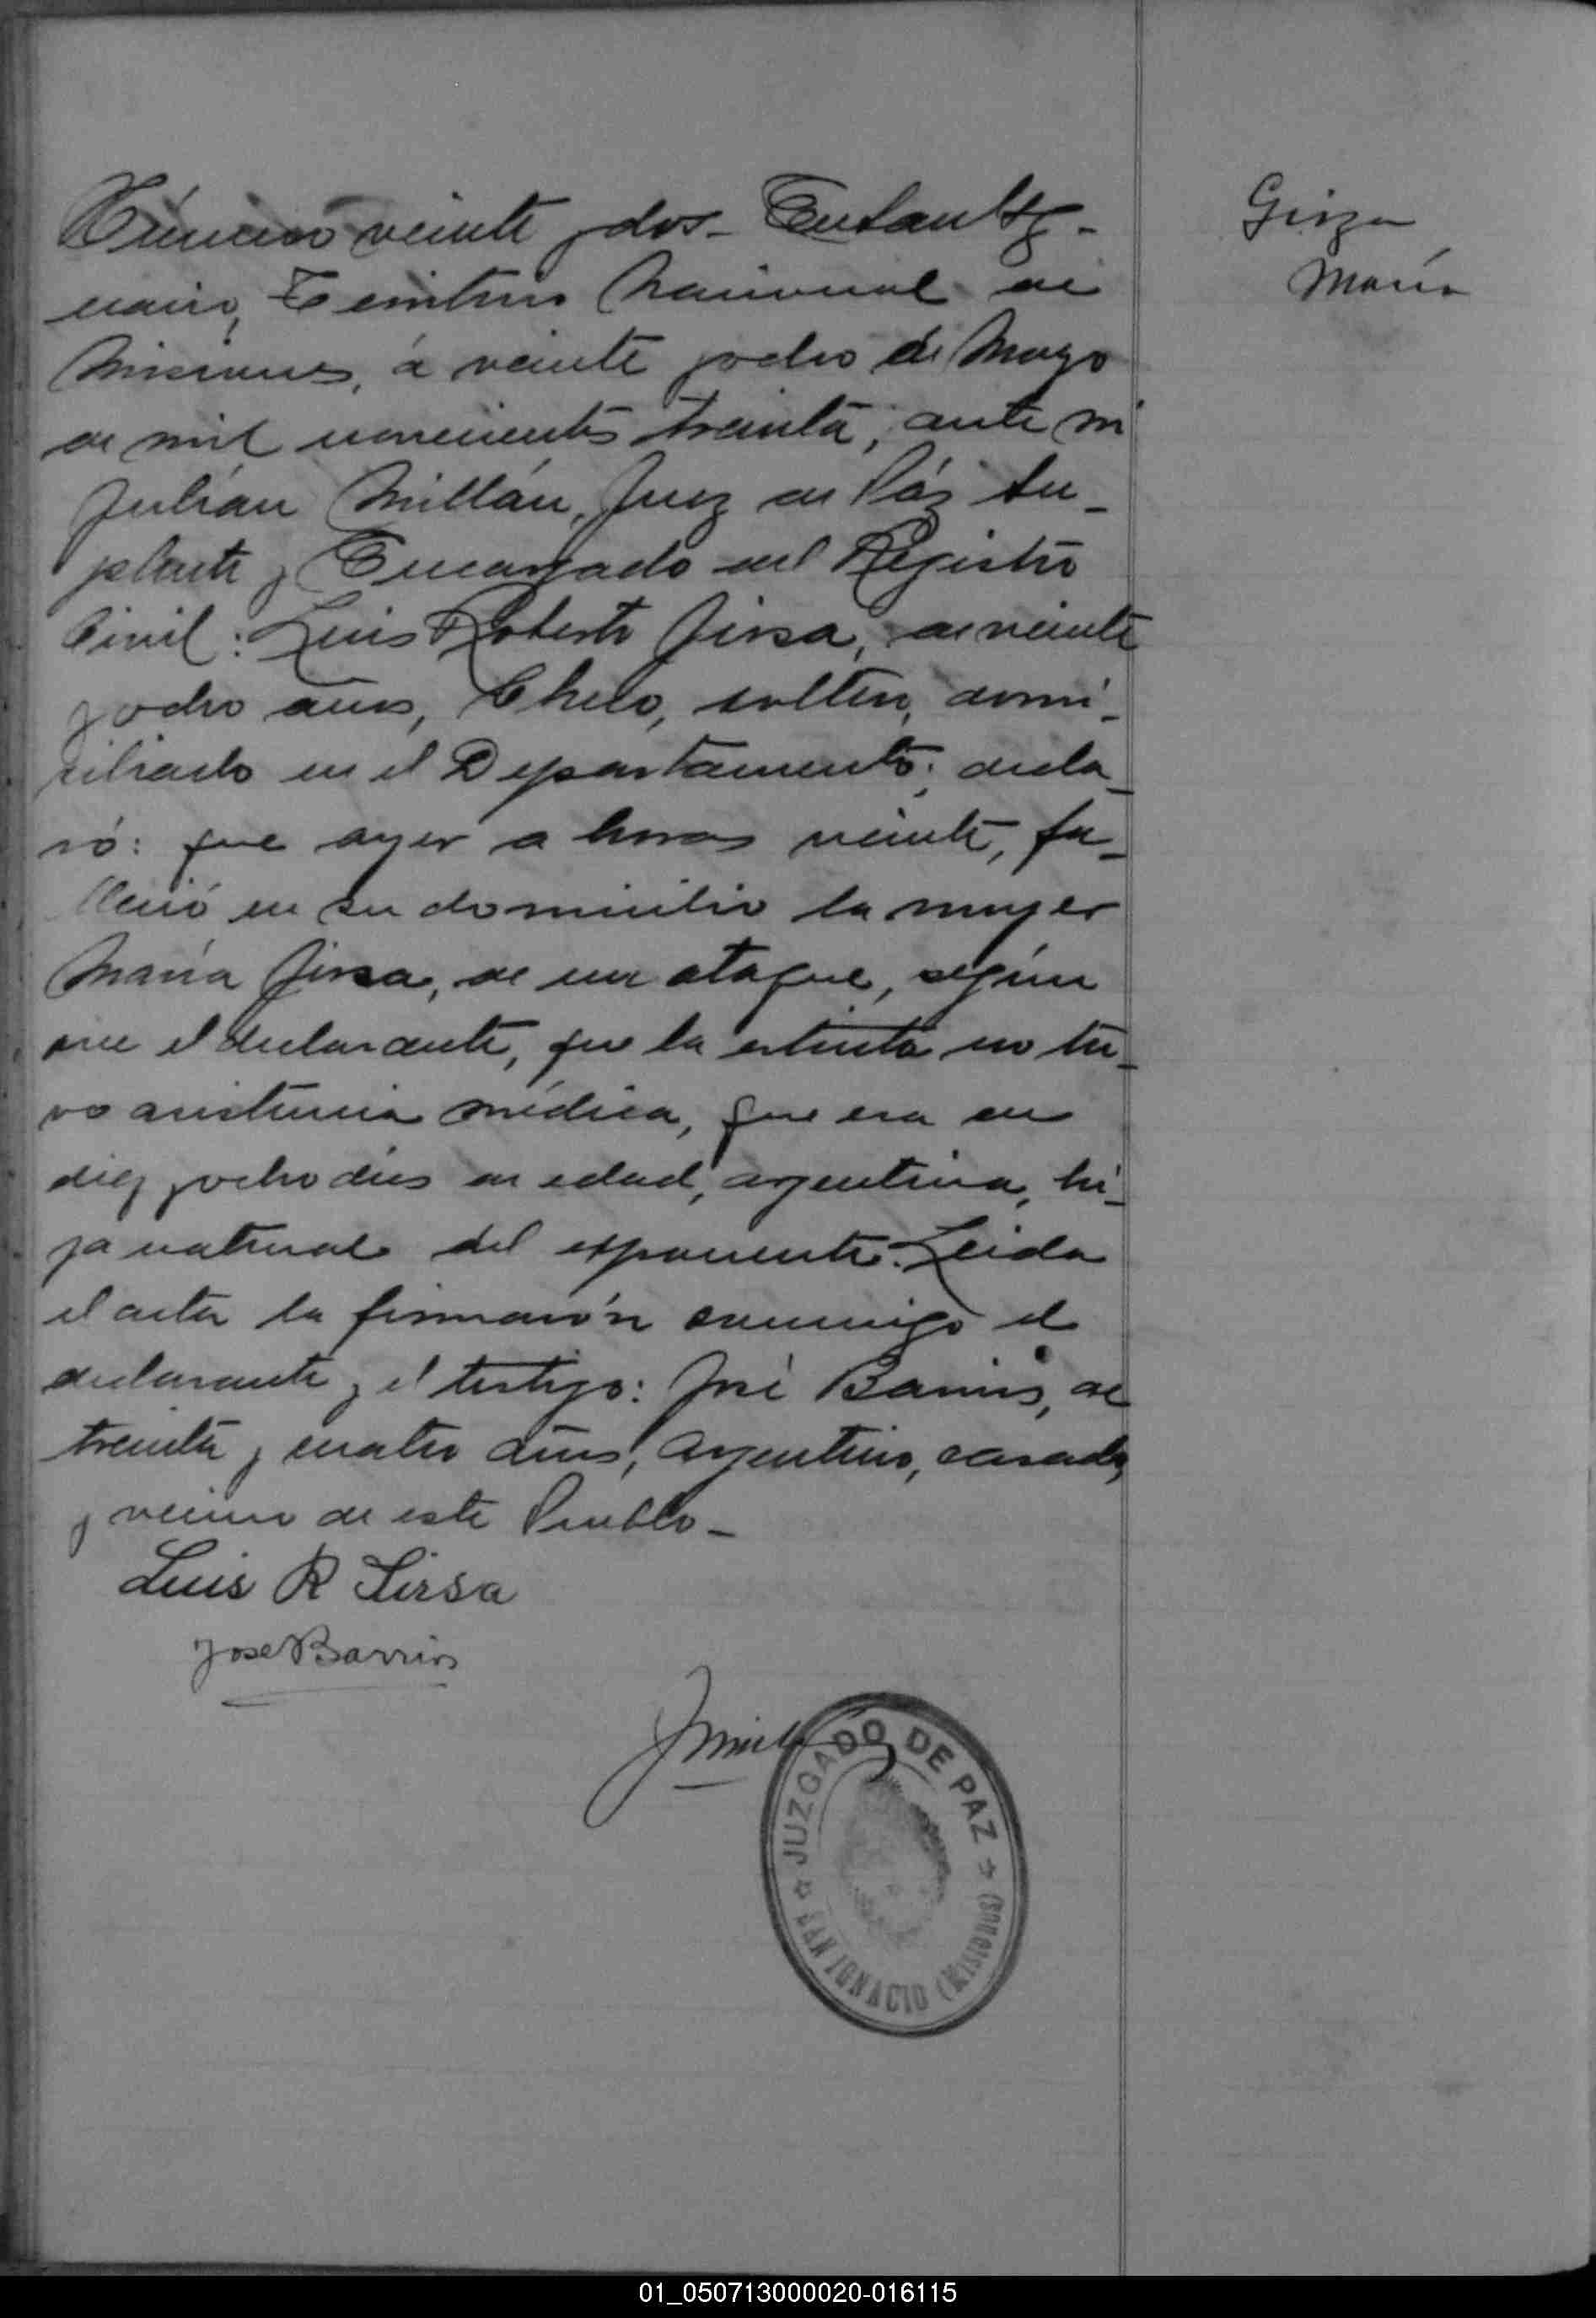 Número veinte y dos - En San Ig-
nacio, Territorio Nacional de
Misiones, á veinte y ocho de Mayo
de mil novecientos treinta, ante mi
Julián Millán, Juez de Páz Su-
plente y Encargado del Registro
Civil: Luis Roberto Jirsa, de veinte
y ocho años, Checo, soltero, domi-
ciliado en el Departamento; decla-
ró: que ayer a horas veinte, fa-
lleció en su domicilio la mujer
María Jirsa, de un ataque, según
dice el declarante, que la extinta no tu-
vo asistencia médica, que era de
diez y ocho dias de edad, argentina, hi-
ja natural del exponente. Leida
el acta la firmarón conmigo el
declarante y el testigo: José Barrios, de
treinta y cuatro años, argentino, casado,
y vecino de este Pueblo -
Luis R Jirsa
Jose Barrios
JUZGADO DE PAZ
SAN IGNACIO (MISIONES)
Girza
María
01_050713000020-016115